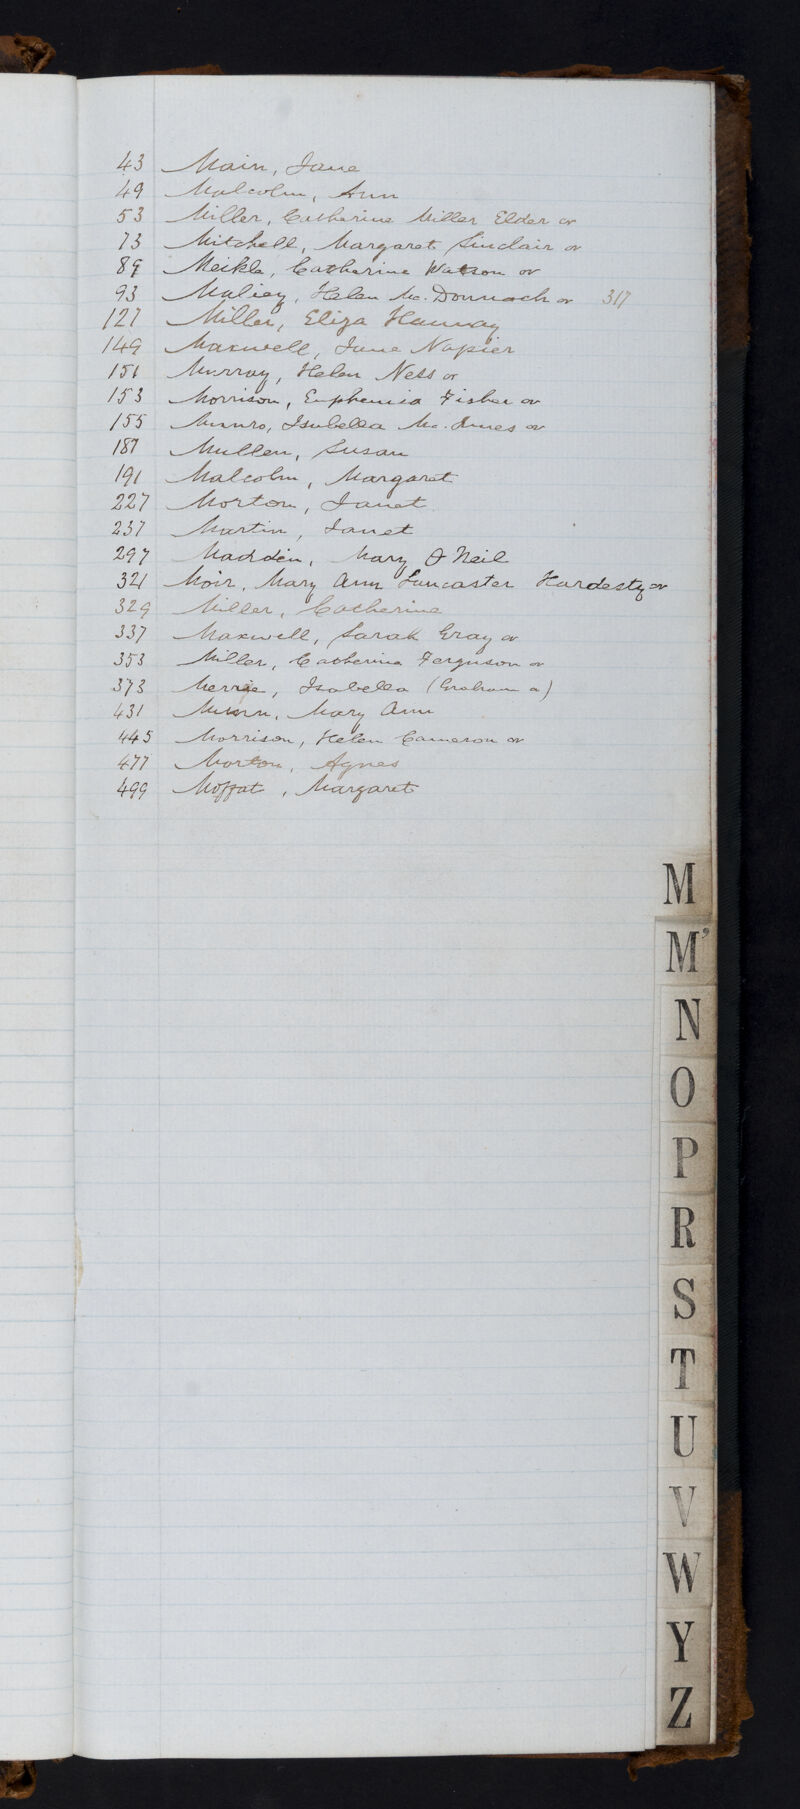 43 Main, Jane
49 Malcolm, Ann
53 Miller, Catherine Miller Elder or
73 Mitchell, Margaret Sinclair or
89 Meikle, Catherine Watson or
93 Helen Mc. Donnach or 317
127 Miller, Eliza Hannay
149 Maxwell, Jane Napier
151 Murray, Helen Ness or
153 Morrison, Euphemia Fisher or
155 Munro, Isabella Mc. Innes or
187 Mullen, Susan
191 Malcolm, Margaret
227 Morton, Janet
237 Martin, Janet
297 Madden, Mary O Neil
321 Moir, Mary Ann Lancaster Hardesty or
329 Miller, Catherine
337 Maxwell, Sarah Gray or
353 Miller, Catherine Ferguson or
373 Isabella (Graham or)
431 Mary Ann
445 Morrison, Helen Cameron or
477 Morton, Agnes
499 Moffat, Margaret
M
M'
N
O
P
R
S
T
U
V
W
Y
Z